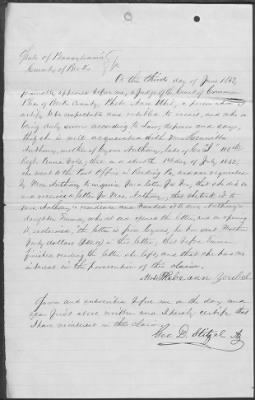 State of Pennsylvania
County of Berks
On the third day of June 186
personally appeared before me, a Judge of the Court of Common
Pleas of Berks County,
certify to be respectable and entitled to credit, and who
being duly sworn according to Law, deposes and says,
that she is well acquainted with Mrs Henrietta
Anthony, mother of Cyrus Anthony, late of Co
Regt Penna Vols, that on or about the 1st day of July 1862,
she went to the Post Office in Reading Pa, and was requested
by Mrs Anthony to enquire for a letter for her, that she did so
and received a letter for Mrs Anthony, that she took it to
Mrs Anthony's residence and handed it to Mrs Anthony's
daughter Emma, who at once opened the letter, and on opening
it exclaimed, the letter is from Cyrus, he has sent
dollars in this letter, that before Emma
finished reading the letter she left, and that she has no
interest in the prosecution of this claim.
Sworn and subscribed before me on the day and
year first above written and I hereby certify that
I have no interest in this claim.
Geo D. Stitzel